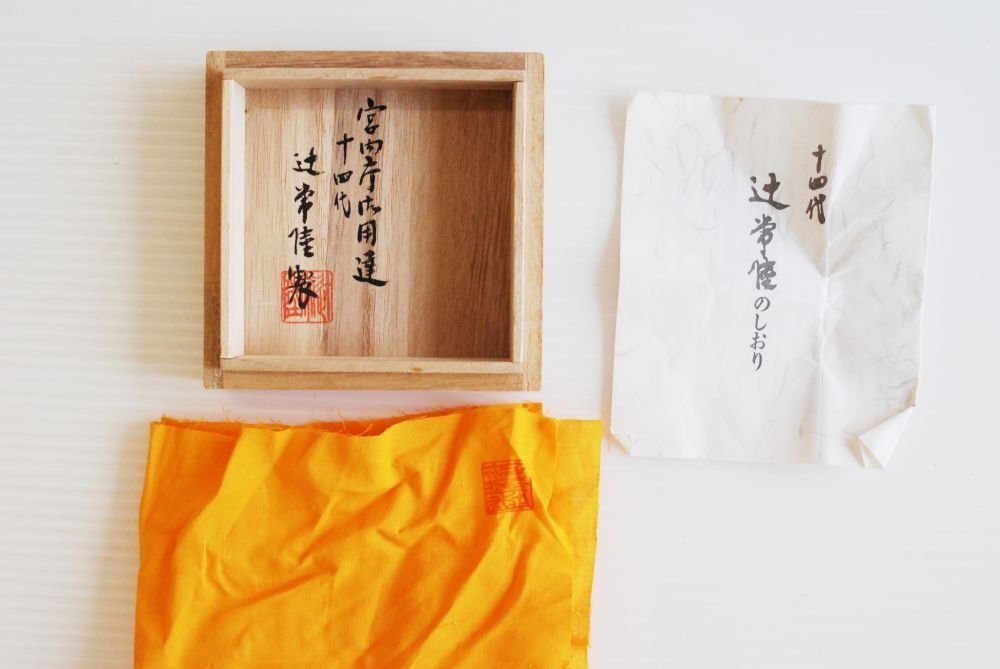 宮内庁御用達
十四代
辻常陸製
十四代
辻常陸のしおり